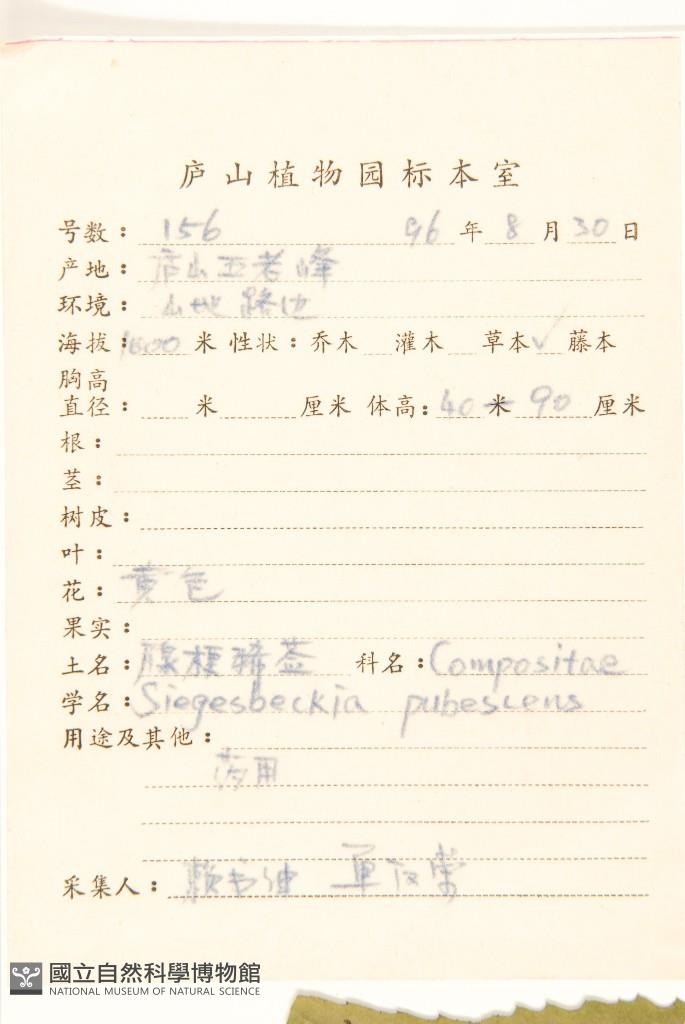 庐山植物园标本室
号数：156 96年8月30日
产地：庐山五老峰
环境：山地路边
海拔：1600米 性状：乔木 灌木 草本✓ 藤本
胸高
直径： 米 厘米 体高：40米90厘米
根：
茎：
树皮：
叶：
花：黄色
果实：
土名：腺梗豨莶 科名：Compositae
学名：Siegesbeckia pubescens
用途及其他：
药用
采集人：赖书绅 单汉荣
國立自然科學博物館
NATIONAL MUSEUM OF NATURAL SCIENCE